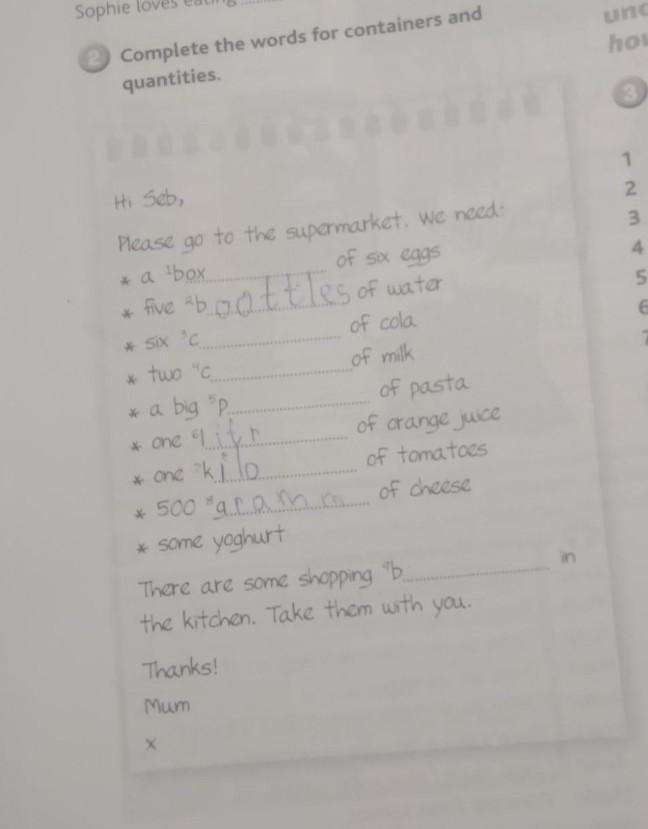 Sophie loves eating
2 Complete the words for containers and
quantities.
Hi Seb,
Please go to the supermarket. We need:
* a ¹box of six eggs
* five ²boottles of water
* six ³c of cola
* two ⁴c of milk
* a big ⁵p of pasta
* one ⁶litr of orange juice
* one ⁷kilo of tomatoes
* 500 ⁸gramm of cheese
* some yoghurt
There are some shopping ⁹b in
the kitchen. Take them with you.
Thanks!
Mum
x
3
1
2
3
4
5
6